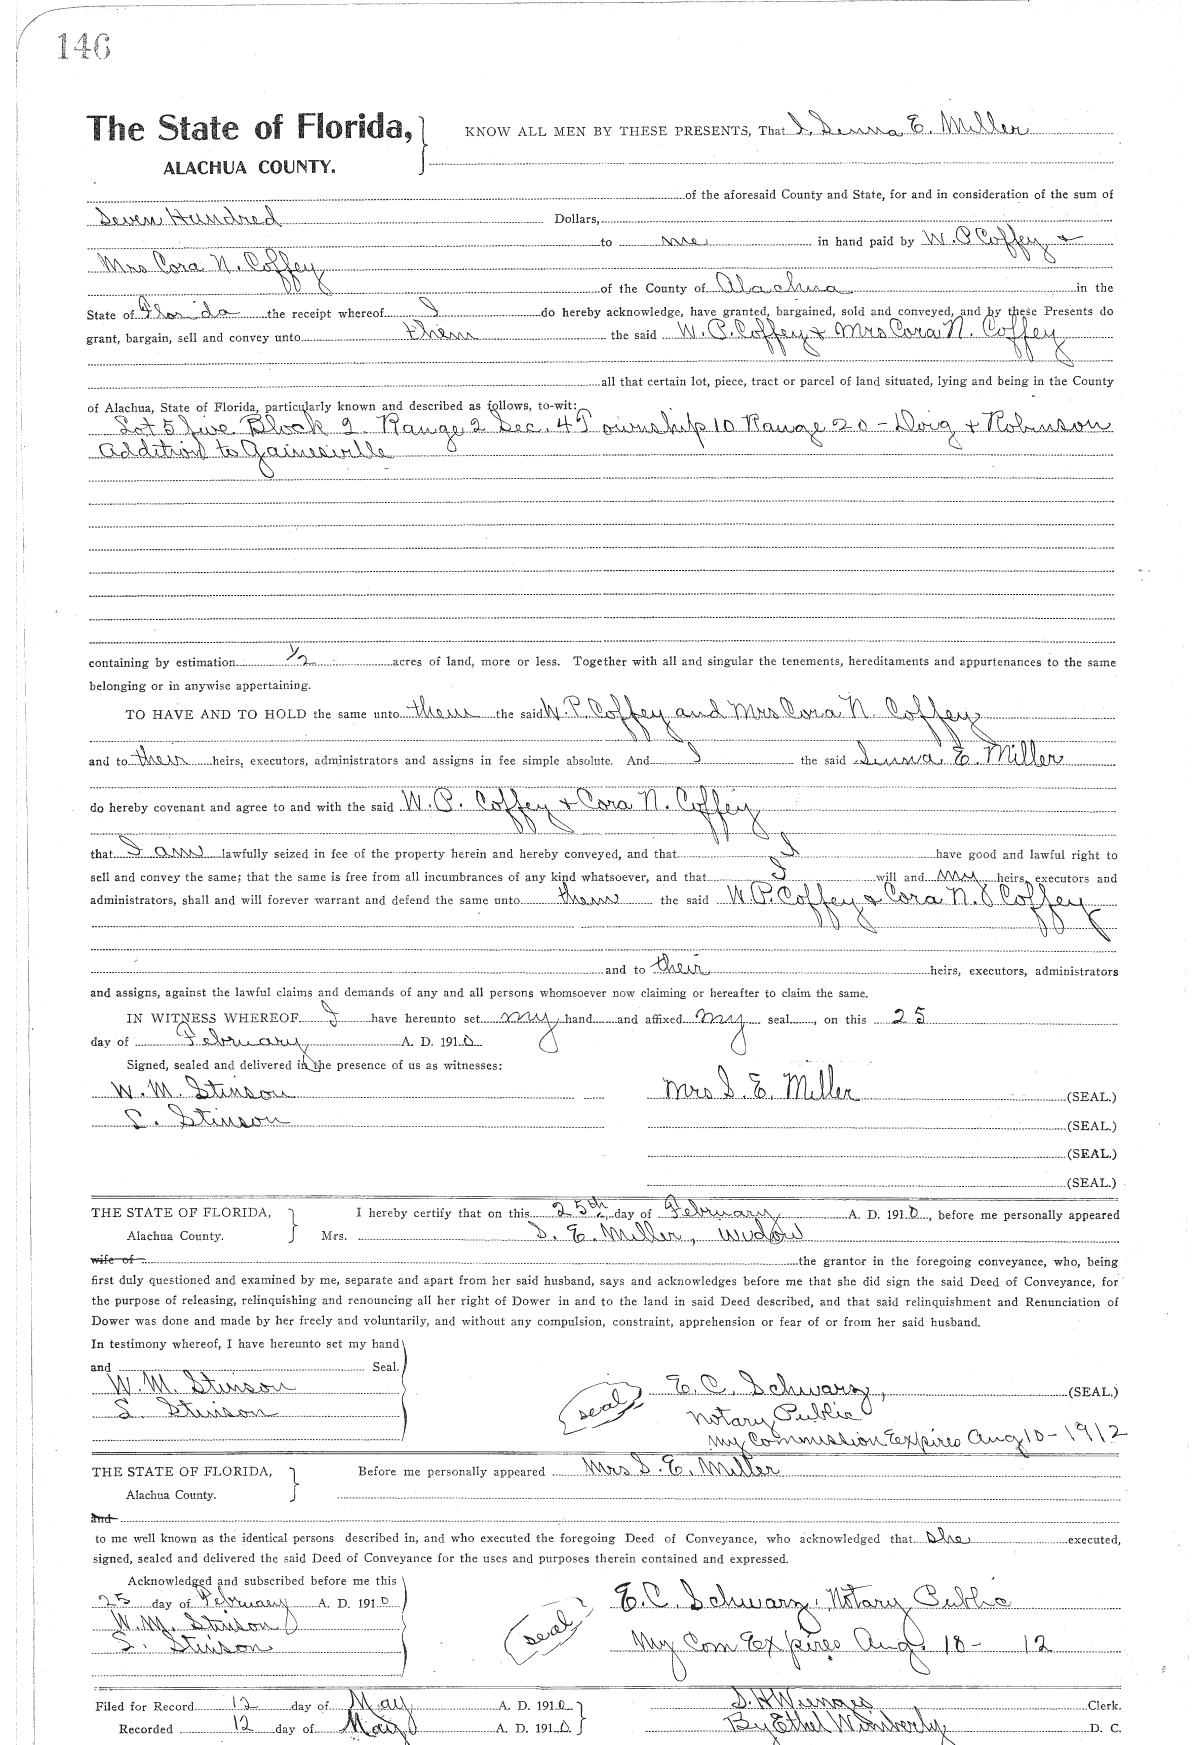 146
The State of Florida, KNOW ALL MEN BY THESE PRESENTS, That I, Senna E. Miller
ALACHUA COUNTY.
of the aforesaid County and State, for and in consideration of the sum of
Seven Hundred Dollars,
to me in hand paid by W. P. Coffey &
Mrs Cora N. Coffey
of the County of Alachua in the
State of Florida the receipt whereof I do hereby acknowledge, have granted, bargained, sold and conveyed, and by these Presents do
grant, bargain, sell and convey unto them the said W. P. Coffey & Mrs Cora N. Coffey
all that certain lot, piece, tract or parcel of land situated, lying and being in the County
of Alachua, State of Florida, particularly known and described as follows, to-wit:
Lot 5 five Block 2. Range 2 Sec. 4 Township 10 Range 20 - Doig & Robinson
Addition to Gainesville
containing by estimation 1/2 acres of land, more or less. Together with all and singular the tenements, hereditaments and appurtenances to the same
belonging or in anywise appertaining.
TO HAVE AND TO HOLD the same unto them the said W. P. Coffey and Mrs Cora N. Coffey
and to their heirs, executors, administrators and assigns in fee simple absolute. And I the said Senna E. Miller
do hereby covenant and agree to and with the said W. P. Coffey & Cora N. Coffey
that I am lawfully seized in fee of the property herein and hereby conveyed, and that I have good and lawful right to
sell and convey the same; that the same is free from all incumbrances of any kind whatsoever, and that I will and my heirs, executors and
administrators, shall and will forever warrant and defend the same unto them the said W. P. Coffey & Cora N. Coffey
and to their heirs, executors, administrators
and assigns, against the lawful claims and demands of any and all persons whomsoever now claiming or hereafter to claim the same.
IN WITNESS WHEREOF I have hereunto set my hand and affixed my seal, on this 25
day of February A. D. 1910
Signed, sealed and delivered in the presence of us as witnesses:
W. M. Stinson Mrs S. E. Miller (SEAL.)
S. Stinson (SEAL.)
(SEAL.)
(SEAL.)
THE STATE OF FLORIDA, I hereby certify that on this 25th day of February A. D. 1910, before me personally appeared
Alachua County. Mrs. S. E. Miller, widow
wife of the grantor in the foregoing conveyance, who, being
first duly questioned and examined by me, separate and apart from her said husband, says and acknowledges before me that she did sign the said Deed of Conveyance, for
the purpose of releasing, relinquishing and renouncing all her right of Dower in and to the land in said Deed described, and that said relinquishment and Renunciation of
Dower was done and made by her freely and voluntarily, and without any compulsion, constraint, apprehension or fear of or from her said husband.
In testimony whereof, I have hereunto set my hand
and Seal.
W. M. Stinson (seal) E. C. Schwarz, (SEAL.)
S. Stinson Notary Public
My Commission Expires Aug 10 - 1912
THE STATE OF FLORIDA, Before me personally appeared Mrs S. E. Miller
Alachua County.
and
to me well known as the identical persons described in, and who executed the foregoing Deed of Conveyance, who acknowledged that she executed,
signed, sealed and delivered the said Deed of Conveyance for the uses and purposes therein contained and expressed.
Acknowledged and subscribed before me this
25 day of February A. D. 1910 E. C. Schwarz, Notary Public
W. M. Stinson (seal)
S. Stinson My Com Expires Aug. 10 - 12
Filed for Record 12 day of May A. D. 1910 S. H. Wienges Clerk.
Recorded 12 day of May A. D. 1910 By Ethel Wimberly D. C.